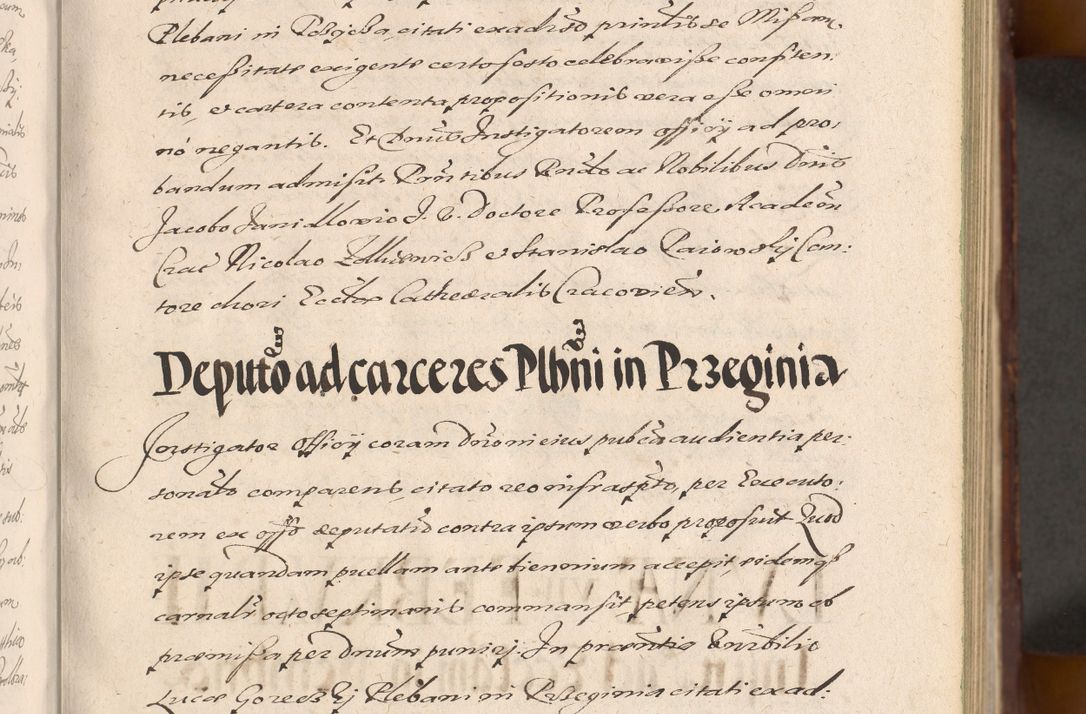 Plebani in citati ex adverso principaliter se Missam
necessitate exigente certo festo celebravisse confiten:
tis, et caetera contenta propositionis vera esse omni
nó negantis. Et Dnus Instigatorem officij ad pro:
bandum admisit. Pntibus Rndo ac Nobilibus Dnis
Jacobo Janidlovio J. V. Doctore Professore Academ
Crac Nicolao et Stanislao Can:
tore chori Eccliae Cathedralis Cracovien.
Deputo ad carceres Plbni in Przeginia
Instigator Officij coram Dno in eius publca audientia per:
sonalr comparens citato reo infraspto, per Executo:
rem ex offo deputatu contra ipsum verbo proposuit Quod
ipse quandam puellam ante biennium accepit, eidemq
carnalr octo septimanis commansit petens ipsum ob
praemissa per Dnum puniri. In praesentia Venrbilis
Lucae Plebani in Przeginia citati ex ad: